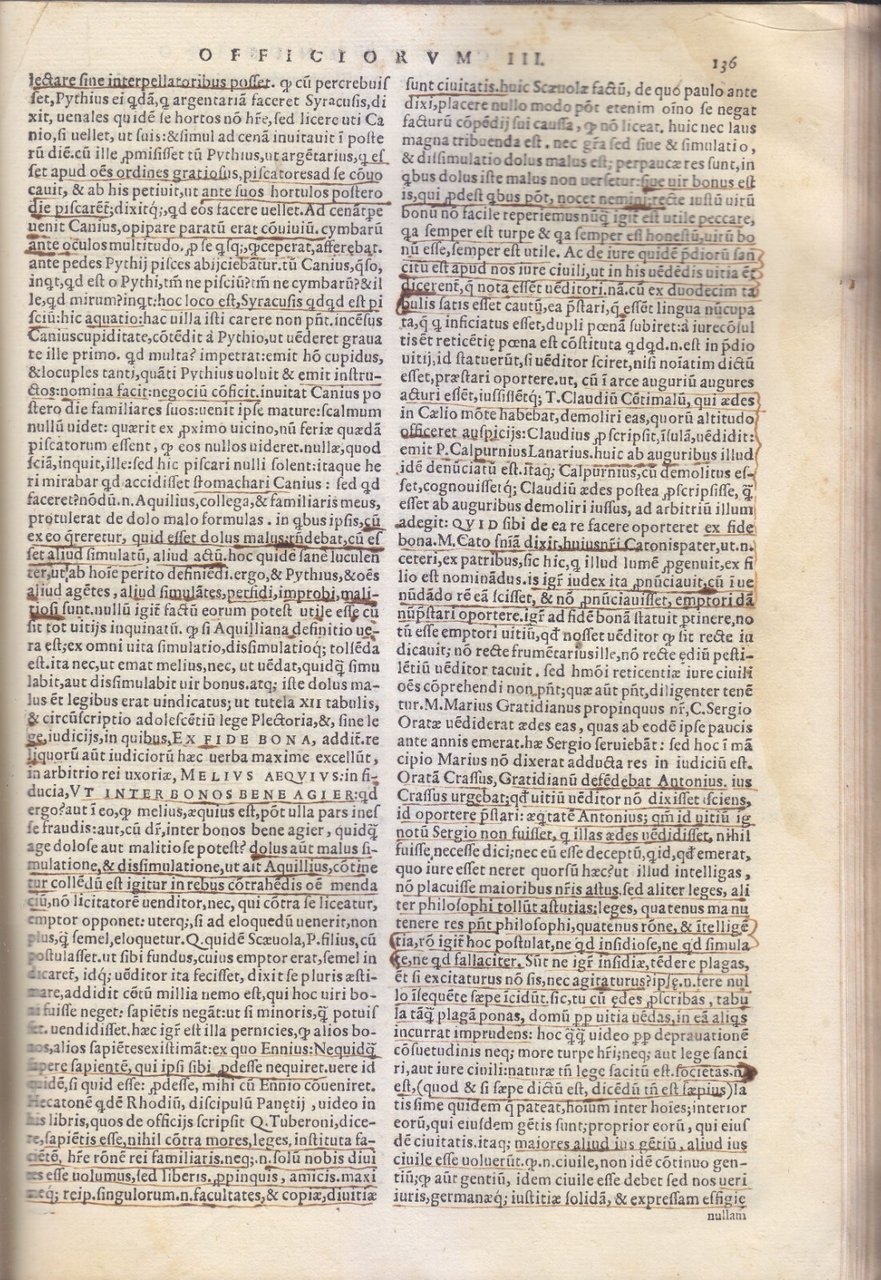 OFFICIORVM III.
136
lectare sine interpellatoribus posset. ꝙ cũ percrebuis
set, Pythius ei qdã, q argentariã faceret Syracusis, di
xit, uenales quidẽ se hortos nõ hr̃e, sed licere uti Ca
nio, si uellet, ut suis: & simul ad cenã inuitauit ĩ poste
rũ diẽ. cũ ille ꝓmisisset tũ Pythius, ut argẽtarius, q es
set apud oẽs ordines gratiosus, piscatores ad se cõuo
cauit, & ab his petiuit, ut ante suos hortulos postero
die piscarẽt; dixitq;, qd eos facere uellet. Ad cenã tpe
uenit Canius, opipare paratũ erat cõuiuiũ. cymbarũ
ante oculos multitudo. ꝓ se qsq;, ꝙ ceperat, afferebat.
ante pedes Pythij pisces abijciebãtur. tũ Canius, q̃so,
inqt, qd est o Pythi, tm̃ ne pisciũ? tm̃ ne cymbarũ? & il
le, qd mirum? inqt: hoc loco est, Syracusis qdqd est pi
sciũ: hic aquatio: hac uilla isti carere non pñt. incẽsus
Canius cupiditate, cõtẽdit à Pythio, ut uẽderet graua
te ille primo. qd multa? impetrat: emit hõ cupidus,
& locuples tanti, quãti Pythius uoluit & emit instru-
ctos: nomina facit: negociũ cõficit. inuitat Canius po
stero die familiares suos: uenit ipse mature: scalmum
nullũ uidet: quærit ex ꝓximo uicino, nũ feriæ quædã
piscatorum essent, ꝙ eos nullos uideret. nullæ, quod
sciã, inquit, ille: sed hic piscari nulli solent: itaque he
ri mirabar qd accidisset stomachari Canius: sed qd
faceret? nõdũ. n. Aquilius, collega, & familiaris meus,
protulerat de dolo malo formulas. in qbus ipsis, cũ
ex eo q̃reretur, quid esset dolus malus: rñdebat, cũ es
set aliud simulatũ, aliud actũ. hoc quidẽ sane luculen
ter, ut ab hoĩe perito definiẽdi. ergo, & Pythius, & oẽs
aliud agẽtes, aliud simulãtes, perfidi, improbi, mali-
tiosi sunt. nullũ igir̃ factũ eorum potest utile esse cũ
sit tot uitijs inquinatũ. ꝙ si Aquilliana definitio ue-
ra est; ex omni uita simulatio, dissimulatioq; tollẽda
est. ita nec, ut emat melius, nec, ut uẽdat, quidq̃ simu
labit, aut dissimulabit uir bonus. atq; iste dolus ma-
lus ẽt legibus erat uindicatus; ut tutela XII tabulis,
& circũscriptio adolescẽtiũ lege Plectoria, &, sine le
ge, iudicijs, in quibus, EX FIDE BONA, addit̃. re
liquorũ aũt iudiciorũ hæc uerba maxime excellũt,
in arbitrio rei uxoriæ, MELIVS AEQVIVS: in fi-
ducia, VT INTER BONOS BENE AGIER: qd
ergo? aut ĩ eo, ꝙ melius, æquius est, põt ulla pars ines
se fraudis: aut, cũ dr̃, inter bonos bene agier, quidq̃
age dolose aut malitiose potest? dolus aũt malus si-
mulatione, & dissimulatione, ut ait Aquillius, cõtine
tur collẽdũ est igitur in rebus cõtrahẽdis oẽ menda
ciũ, nõ licitatorẽ uenditor, nec, qui cõtra se liceatur,
emptor opponet: uterq;, si ad eloquedũ uenerit, non
plus, q̃ semel, eloquetur. Q. quidẽ Scæuola, P. filius, cũ
postulasset. ut sibi fundus, cuius emptor erat, semel in
dicaret̃, idq; uẽditor ita fecisset, dixit se pluris æsti-
mare, addidit cõtũ millia nemo est, qui hoc uiri bo-
ni fuisse neget: sapiẽtis negãt: ut si minoris, q̃ potuis
set. uendidisset. hæc igr̃ est illa pernicies, ꝙ alios bo-
nos, alios sapiẽtes existimãt: ex quo Ennius: Nequidq̃
sapere sapientẽ, qui ipsi sibi ꝓdesse nequiret. uere id
quidẽ, si quid esse: ꝓdesse, mihi cũ Ennio cõueniret.
Hecatonẽ qdẽ Rhodiũ, discipulũ Panętij, uideo in
his libris, quos de officijs scripsit Q. Tuberoni, dice-
re, sapiẽtis esse, nihil cõtra mores, leges, instituta fa-
ciẽtẽ, hr̃e rõnẽ rei familiaris. neq;. n. solũ nobis diui
tes esse uolumus, sed liberis. ꝓpinquis, amicis. maxi
meq; reip. singulorum. n. facultates, & copiæ, diuitiæ
sunt ciuitatis. huic Scæuolæ factũ, de quo paulo ante
dixi, placere nullo modo põt etenim oĩno se negat
facturũ cõpẽdij sui caussa, ꝙ nõ liceat. huic nec laus
magna tribuenda est. nec gr̃a sed siue & simulatio,
& dissimulatio dolus malus est; perpaucæ res sunt, in
qbus dolus iste malus non uersetur: siue uir bonus est
is, qui ꝓdest qbus põt, nocet nemini; recte iustũ uirũ
bonũ nõ facile reperiemus nũq̃ igir̃ est utile peccare,
qa semper est turpe & qa semper est honestũ, uirũ bo
nũ esse, semper est utile. Ac de iure quidẽ p̃diorũ san
citũ est apud nos iure ciuili, ut in his uẽdẽdis uitia ẽt
dicerent, q̃ nota essẽt uẽditori. nã. cũ ex duodecim ta
bulis satis esset cautũ, ea p̃stari, q̃ essẽt lingua nũcupa
ta, q̃ q inficiatus esset, dupli pœnã subiret: à iurecõsul
tis ẽt reticẽtię pœna est cõstituta qdqd. n. est in p̃dio
uitij, id statuerũt, si uẽditor sciret, nisi noĩatim dictũ
esset, præstari oportere. ut, cũ ĩ arce auguriũ augures
acturi essẽt, iussissẽtq; T. Claudiũ Cẽtimalũ, qui ædes
in Cælio mõte habebat, demoliri eas, quorũ altitudo
officeret auspicijs: Claudius ꝓscripsit, ĩsulã, uẽdidit:
emit P. Calpurnius Lanarius. huic ab auguribus illud
idẽ denũciatũ est. itaq; Calpurnius, cũ demolitus es-
set, cognouissetq; Claudiũ ædes postea ꝓscripsisse, q̃
esset ab auguribus demoliri iussus, ad arbitriũ illum
adegit: QVID sibi de ea re facere oporteret ex fide
bona. M. Cato sñiã dixit, huius nr̃i Catonis pater, ut. n.
ceteri, ex patribus, sic hic, q illud lumẽ ꝓgenuit, ex fi
lio est nominãdus. is igr̃ iudex ita ꝓnũciauit, cũ ĩ ue
nũdãdo rẽ eã scisset, & nõ ꝓnũciauisset, emptori dã
nũ p̃stari oportere. igr̃ ad fidẽ bonã statuit ꝑtinere, no
tũ esse emptori uitiũ, qd̃ nosset uẽditor ꝙ sit recte iu
dicauit; nõ recte frumẽtarius ille, nõ recte ędiũ pesti-
lẽtiũ uẽditor tacuit. sed hmõi reticentiæ iure ciuili
oẽs cõprehendi non pñt; quæ aũt pñt, diligenter tenẽ
tur. M. Marius Gratidianus propinquus nr̃, C. Sergio
Oratæ uẽdiderat ædes eas, quas ab eodẽ ipse paucis
ante annis emerat. hæ Sergio seruiebãt: sed hoc ĩ mã
cipio Marius nõ dixerat adducta res in iudiciũ est.
Oratã Crassus, Gratidianũ defẽdebat Antonius. ius
Crassus urgebat; qd̃ uitiũ uẽditor nõ dixisset sciens,
id oportere p̃stari: æq̃tatẽ Antonius; qm̃ id uitiũ ig
notũ Sergio non fuisset, q illas ædes uẽdidisset, nihil
fuisse necesse dici; nec eũ esse deceptũ, q id, qd̃ emerat,
quo iure esset neret quorsũ hæc? ut illud intelligas,
nõ placuisse maioribus nr̃is astus. sed aliter leges, ali
ter philosophi tollũt astutias: leges, quatenus manu
tenere res pñt philosophi, quatenus rõne, & ĩtelligẽ
tia, rõ igir̃ hoc postulat, ne qd insidiose, ne qd simula
te, ne qd fallaciter. Sũt ne igr̃ insidiæ, tẽdere plagas,
ẽt si excitaturus nõ sis, nec agitaturus? ipsę. n. feræ nul
lo ĩsequẽte sæpe ĩcidũt. sic, tu cũ ędes ꝓscribas, tabu
la tãq̃ plagã ponas, domũ ꝓꝑ uitia uẽdas, in eã aliqs
incurrat imprudens: hoc q̃q̃ uideo ꝓꝑ deprauationẽ
cõsuetudinis neq; more turpe hr̃i; neq; aut lege sanci
ri, aut iure ciuili: naturæ tñ lege sacitũ est. societas. n.
est, (quod & si sæpe dictũ est, dicẽdũ tñ est sæpius) la
tissime quidem q̃ pateat, hoĩum inter hoĩes; interior
eorũ, qui eiusdem gẽtis sunt; proprior eorũ, qui eius
dẽ ciuitatis. itaq; maiores aliud ius gẽtiũ, aliud ius
ciuile esse uoluerũt. ꝙ. n. ciuile, non idẽ cõtinuo gen-
tiũ; ꝙ aũt gentiũ, idem ciuile esse debet sed nos ueri
iuris, germanæq; iustitiæ solidã, & expressam effigiẽ
nullam